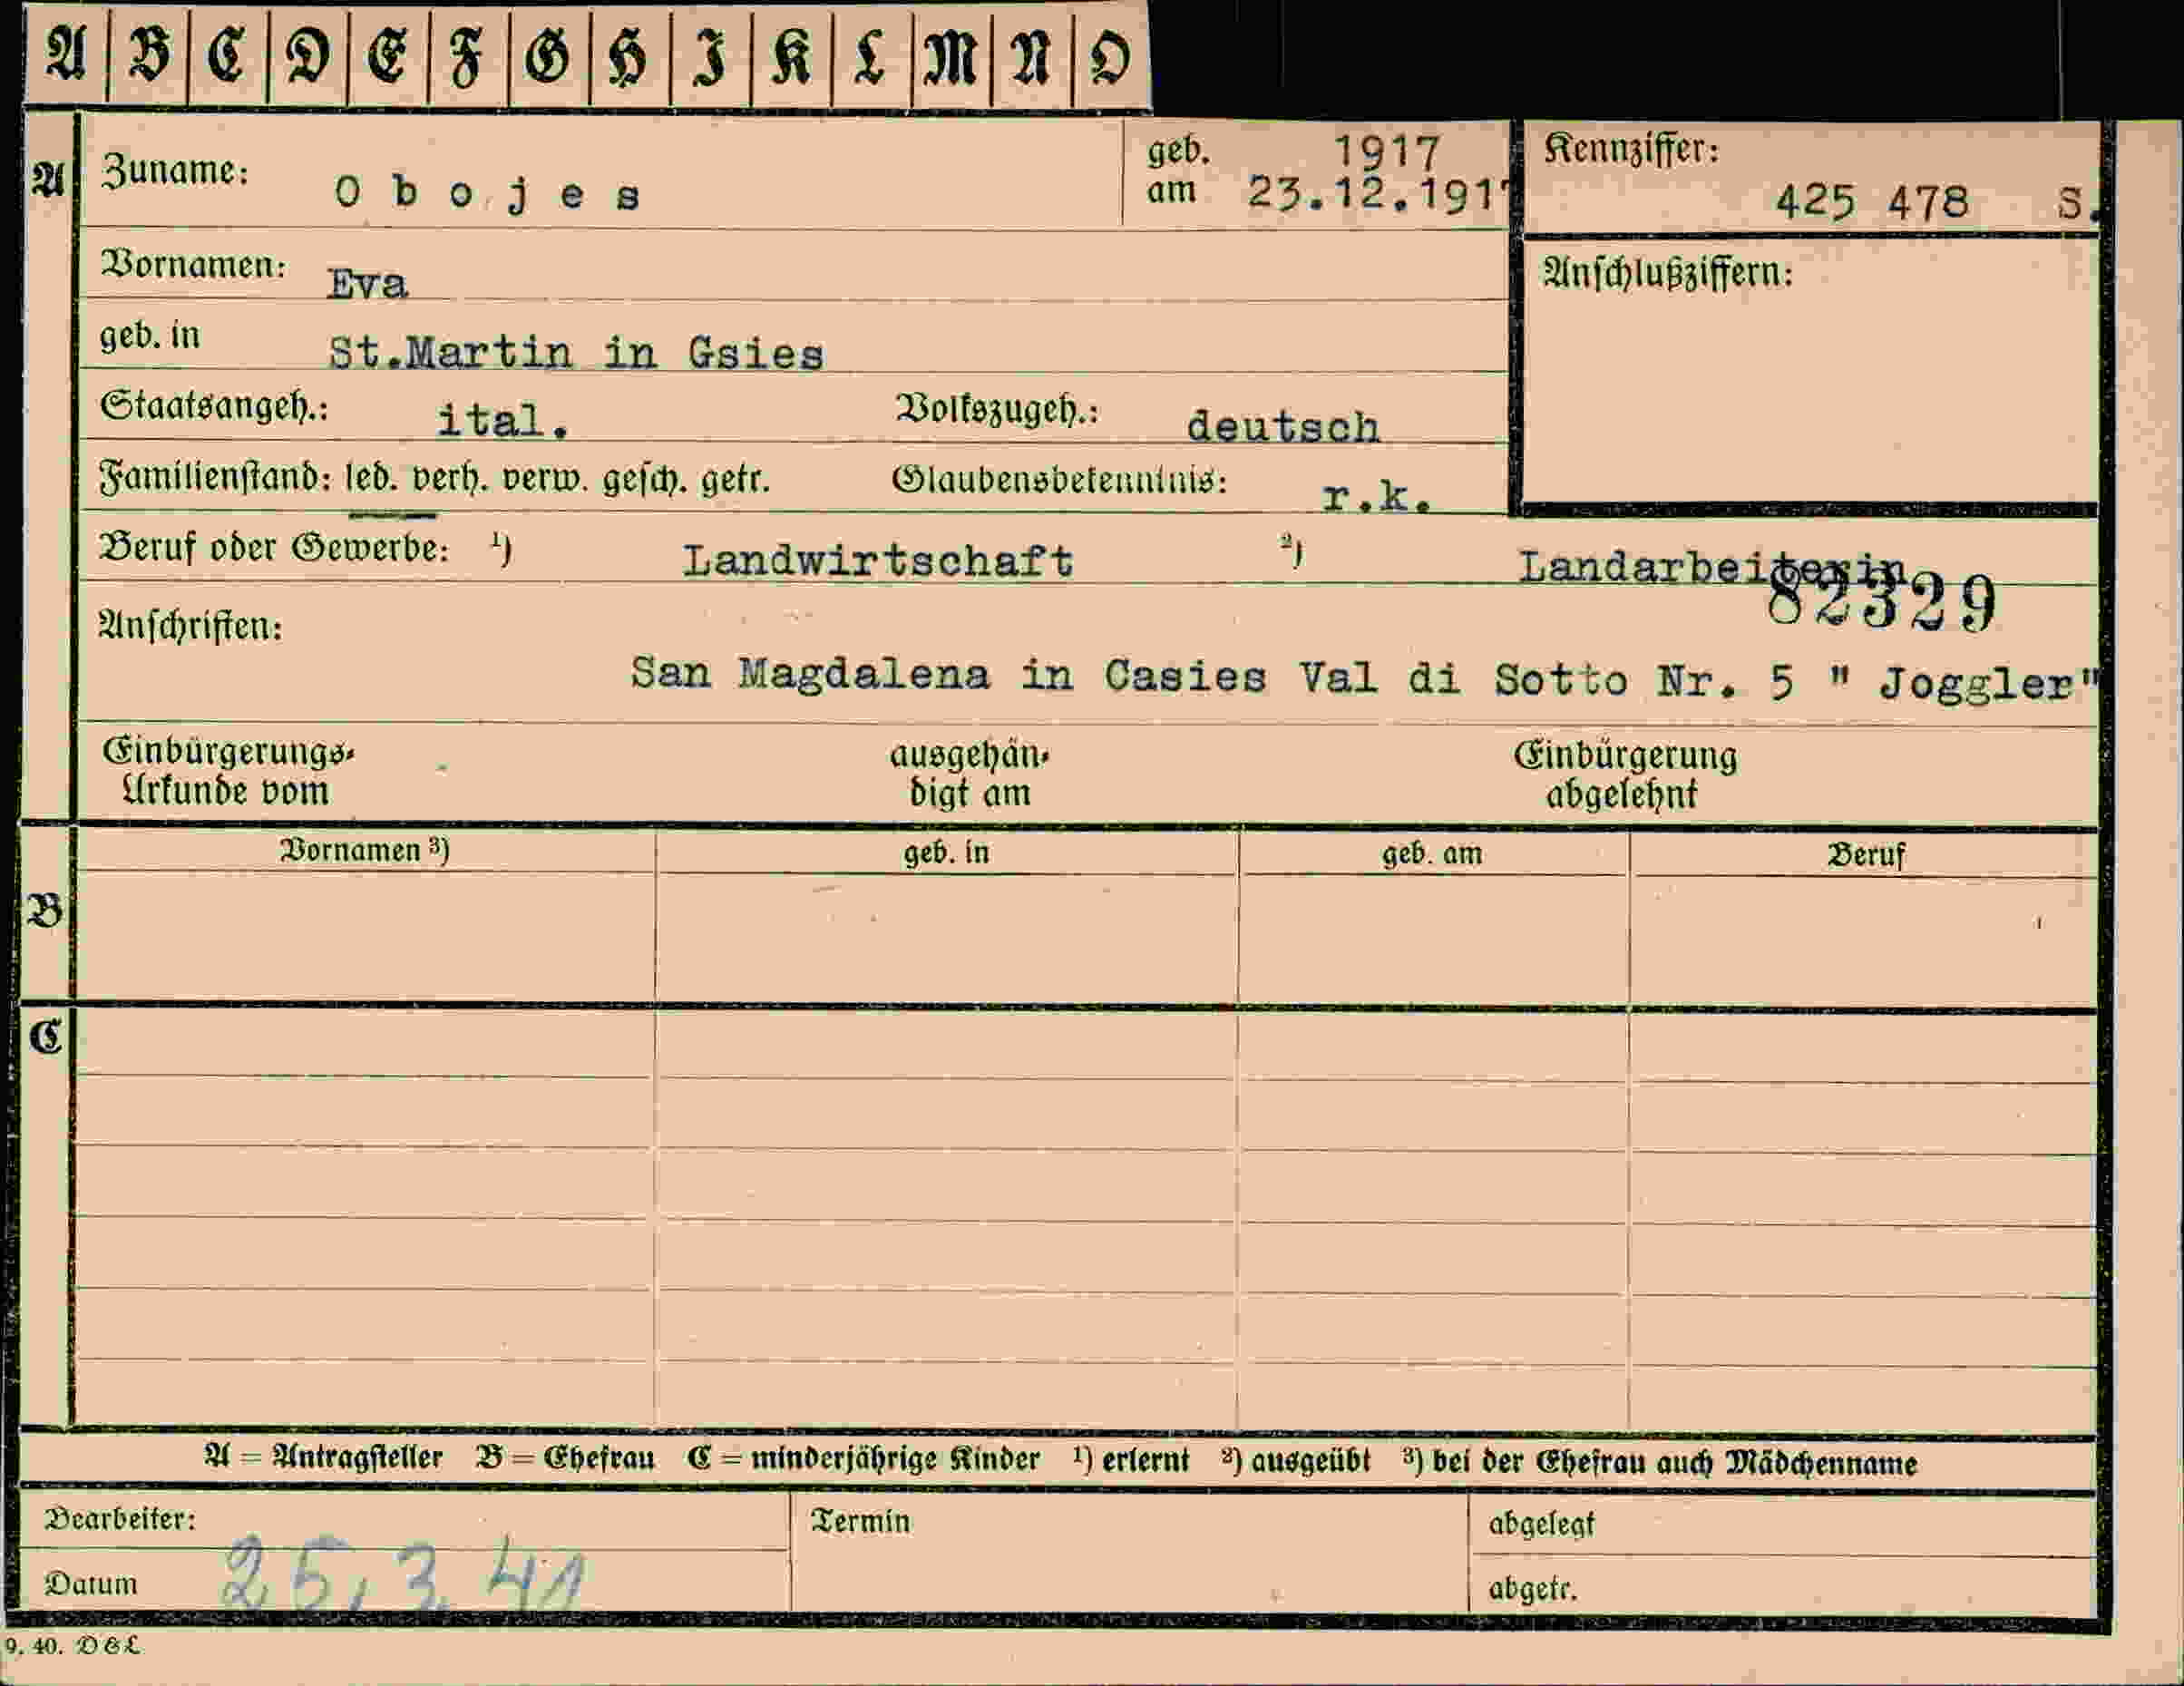 A B C D E F G H I K L M N O
A Zuname: Obojes geb. 1917 am 23.12.1917 Kennziffer: 425 478 S.
Vornamen: Eva Anschlußziffern:
geb. in St.Martin in Gsies
Staatsangeh.: ital. Volkszugeh.: deutsch
Familienstand: led. verh. verw. gesch. getr. Glaubensbekenntnis: r.k.
Beruf oder Gewerbe: 1) Landwirtschaft 2) Landarbeiterin
82329
Anschriften:
San Magdalena in Casies Val di Sotto Nr. 5 " Joggler"
Einbürgerungs- ausgehän- Einbürgerung
Urkunde vom digt am abgelehnt
Vornamen 3) geb. in geb. am Beruf
B
C
A = Antragsteller B = Ehefrau C = minderjährige Kinder 1) erlernt 2) ausgeübt 3) bei der Ehefrau auch Mädchenname
Bearbeiter: Termin abgelegt
Datum 25.3.41 abgetr.
9. 40. DGL